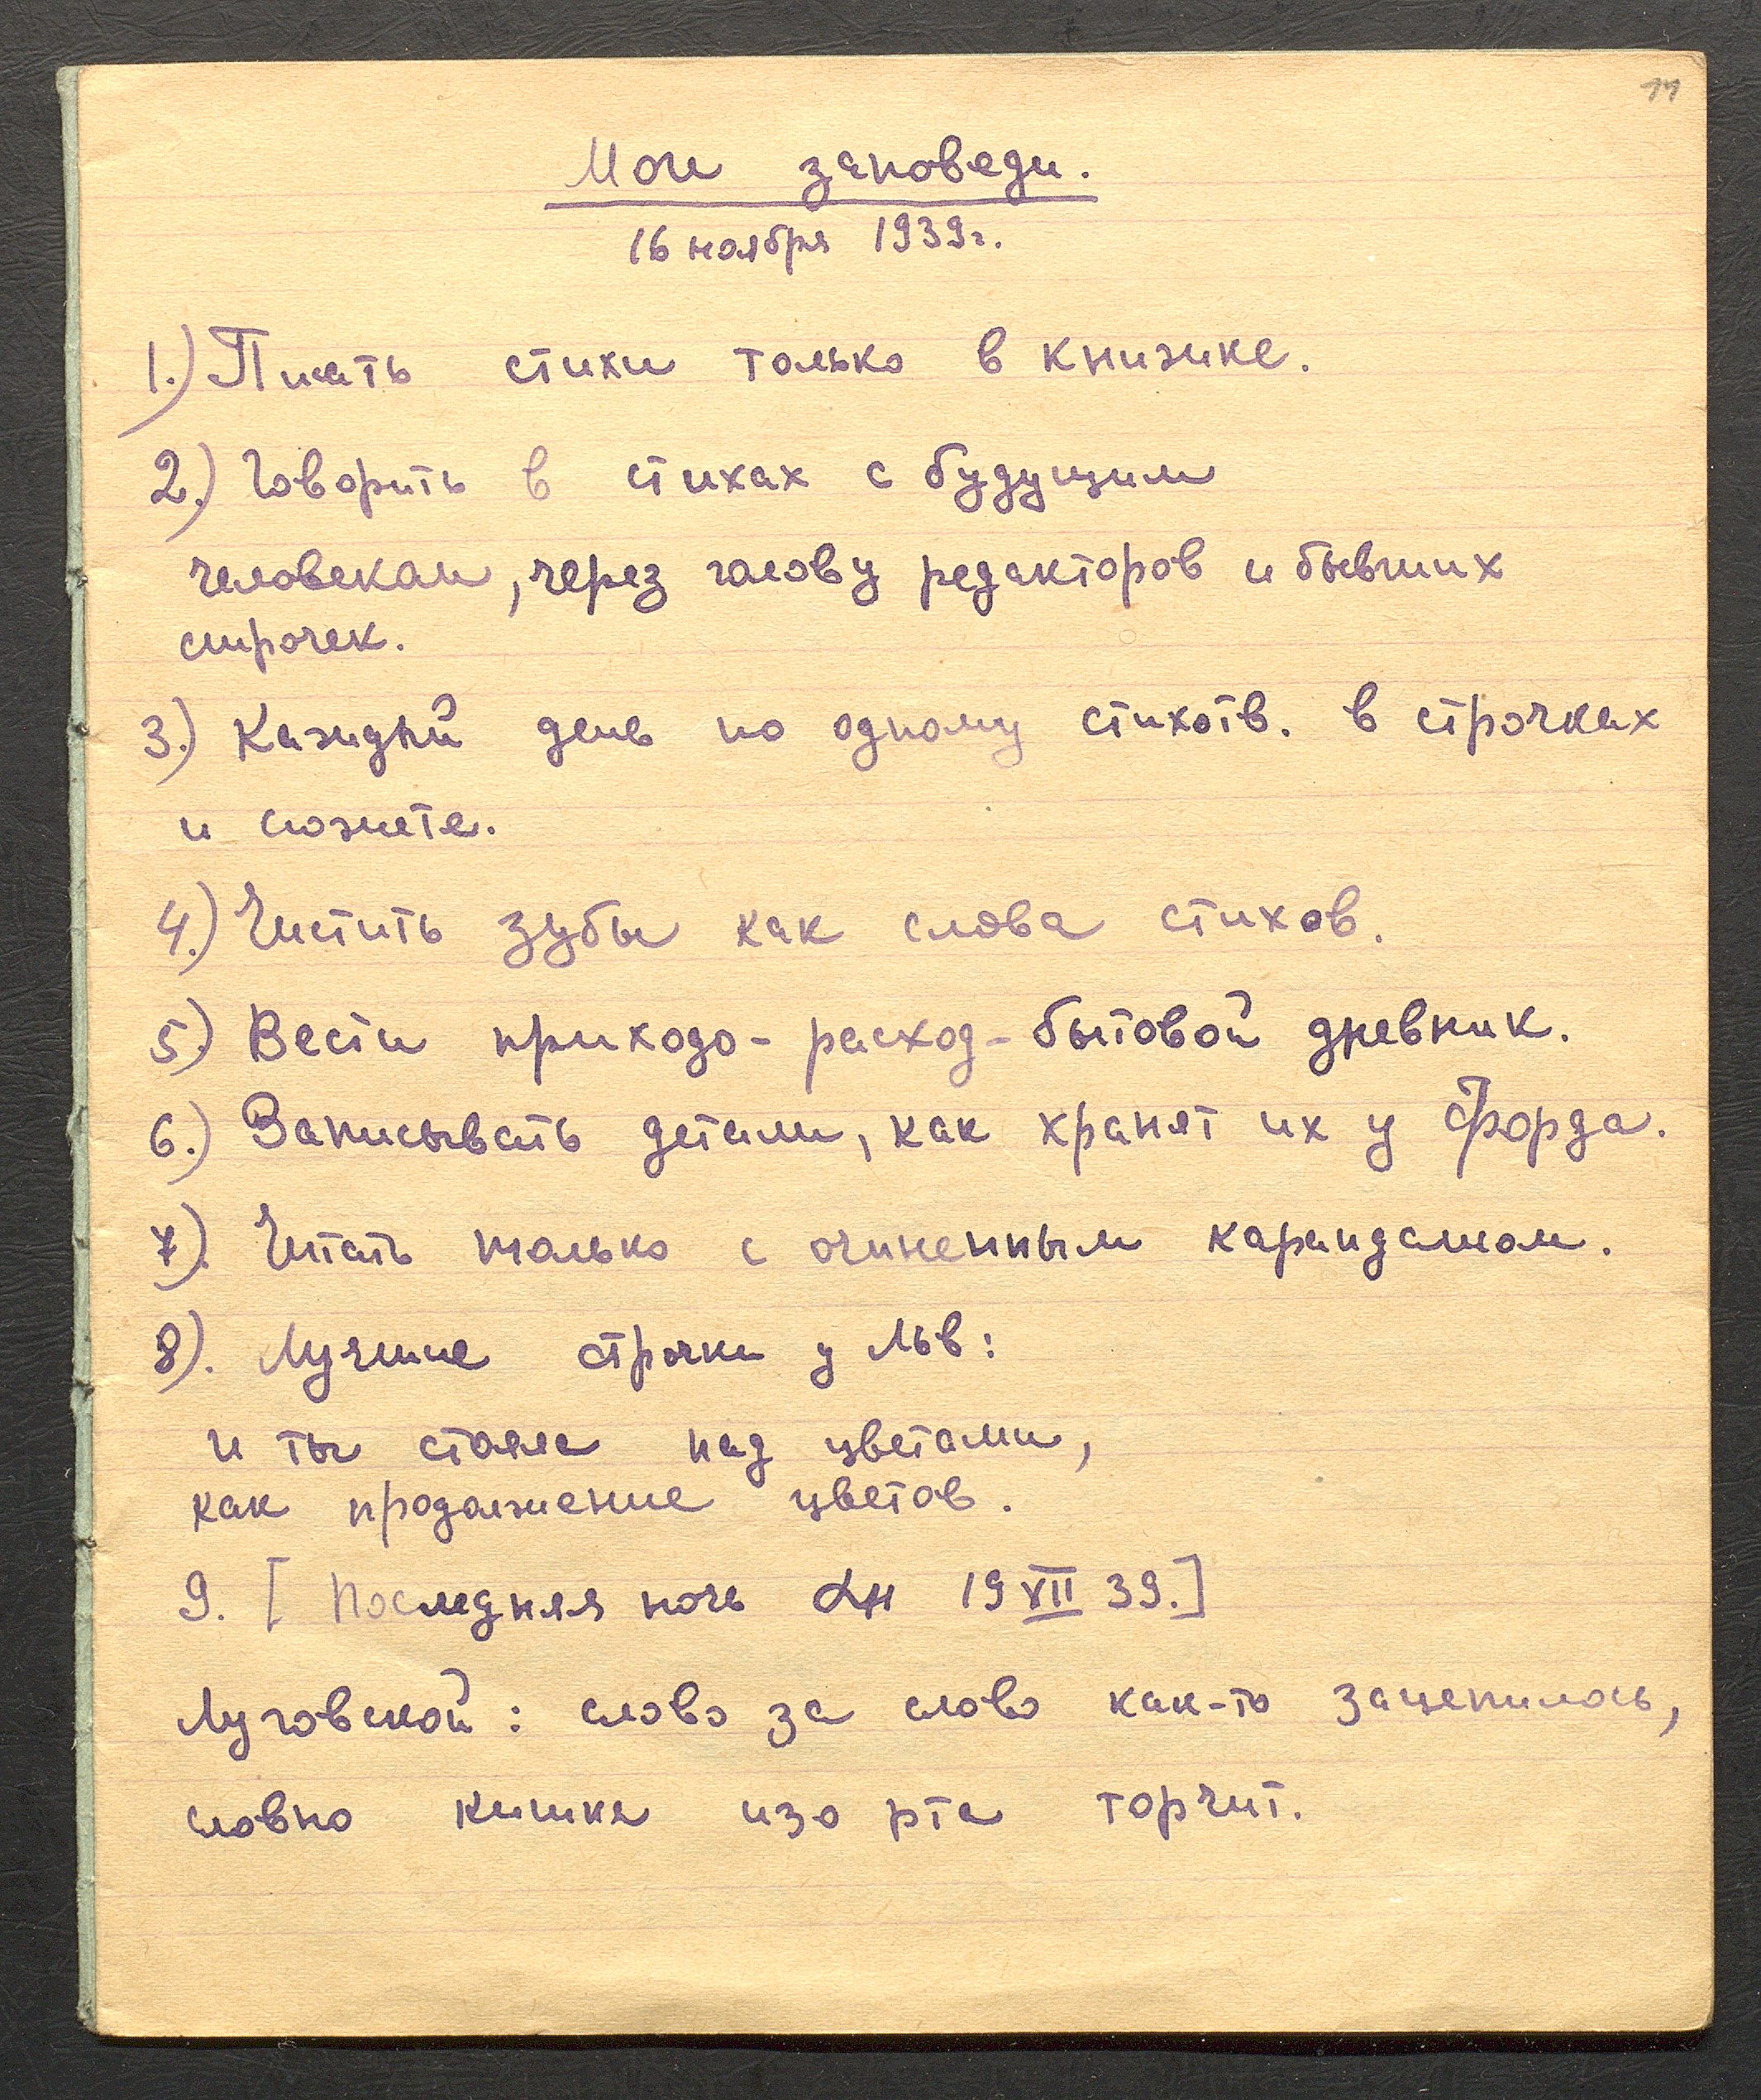 11
Мои заповеди.
16 ноября 1939г.
1.) Писать стихи только в книжке.
2.) Говорить в стихах с будущим
человекам, через голову редакторов и бывших
строчек.
3.) Каждый день по одному стихотв. в строчках
и сюжете.
4.) Чистить зубы как слова стихов.
5.) Вести приходо-расход-бытовой дневник.
6.) Записывать детали, как хранят их у Форда.
7). Читать только с очиненным карандашом.
8). Лучшие строчки у Льв:
и ты стояла над цветами,
как продолжение цветов.
9. [Последняя ночь 19 VII 39.]
Луговской: слово за слово как-то зацепилось,
словно кишка изо рта торчит.